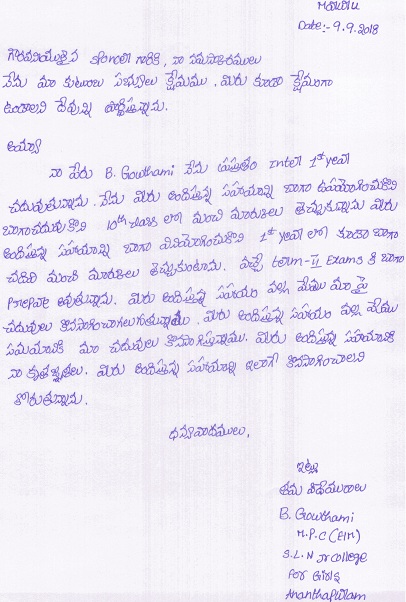 Date:- 9.9.2018
గౌరవనీయులైన sponcer గారికి, నా నమస్కారములు
నేను మా కుటుంబ సభ్యులు క్షేమము. మీరు కూడా క్షేమంగా
ఉండాలని దేవున్ని ప్రార్థిస్తున్నాను.
అమ్మా
నా పేరు B. Gowthami నేను ప్రస్తుతం Inter 1st year
చదువుతున్నాను. నేను మీరు అందిస్తున్న సహాయాన్ని బాగా ఉపయోగించుకొని
బాగా చదువుకొని 10th class లో మంచి మార్కులు తెచ్చుకున్నాను మీరు
అందిస్తున్న సహాయాన్ని బాగా వినియోగించుకొని 1st year లో కూడా బాగా
చదివి మంచి మార్కులు తెచ్చుకుంటాను. వచ్చే term-II Exams కి బాగా
Prepare అవుతున్నాను. మీరు అందిస్తున్న సహాయం వల్ల మేము మా పై
చదువులు కొనసాగించగలుగుతున్నాము. మీరు అందిస్తున్న సహాయం వల్ల మేము
సమయానికి మా చదువులు కొనసాగిస్తున్నాము. మీరు అందిస్తున్న సహాయానికి
నా కృతజ్ఞతలు. మీరు అందిస్తున్న సహాయాన్ని ఇలాగే కొనసాగించాలని
కోరుతున్నాను.
ధన్యవాదములు,
ఇట్లు
తమ విధేయురాలు
B. Gowthami
M.P.C (E/M)
S.L.N Jr College
For Girls
Ananthapuram